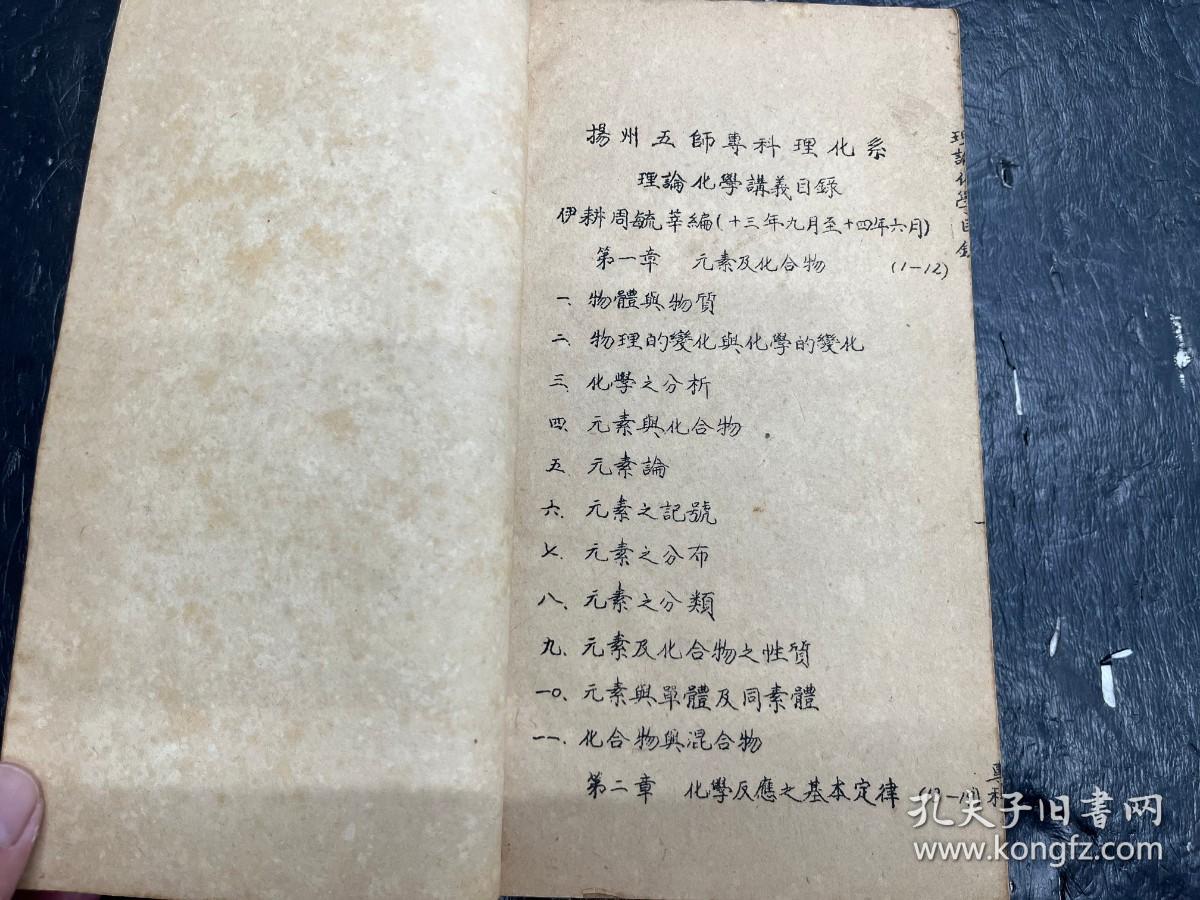 揚州五師專科理化系
理論化學講義目錄
伊耕周毓莘編(十三年九月至十四年六月)
第一章 元素及化合物 (1-12)
一、物體與物質
二、物理的變化與化學的變化
三、化學之分析
四、元素與化合物
五、元素論
六、元素之記號
七、元素之分布
八、元素之分類
九、元素及化合物之性質
一〇、元素與單體及同素體
一一、化合物與混合物
第二章 化學反應之基本定律
理論化學目錄
專科
孔夫子旧书网
www.kongfz.com